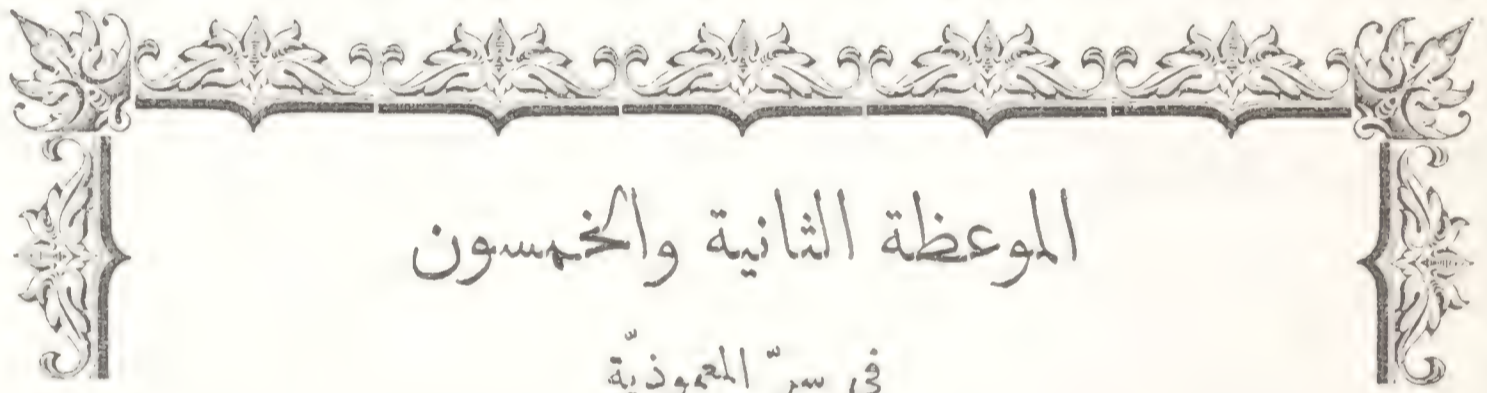 الموعظة الثانية والخمسون
في سرّ المعموذيّة